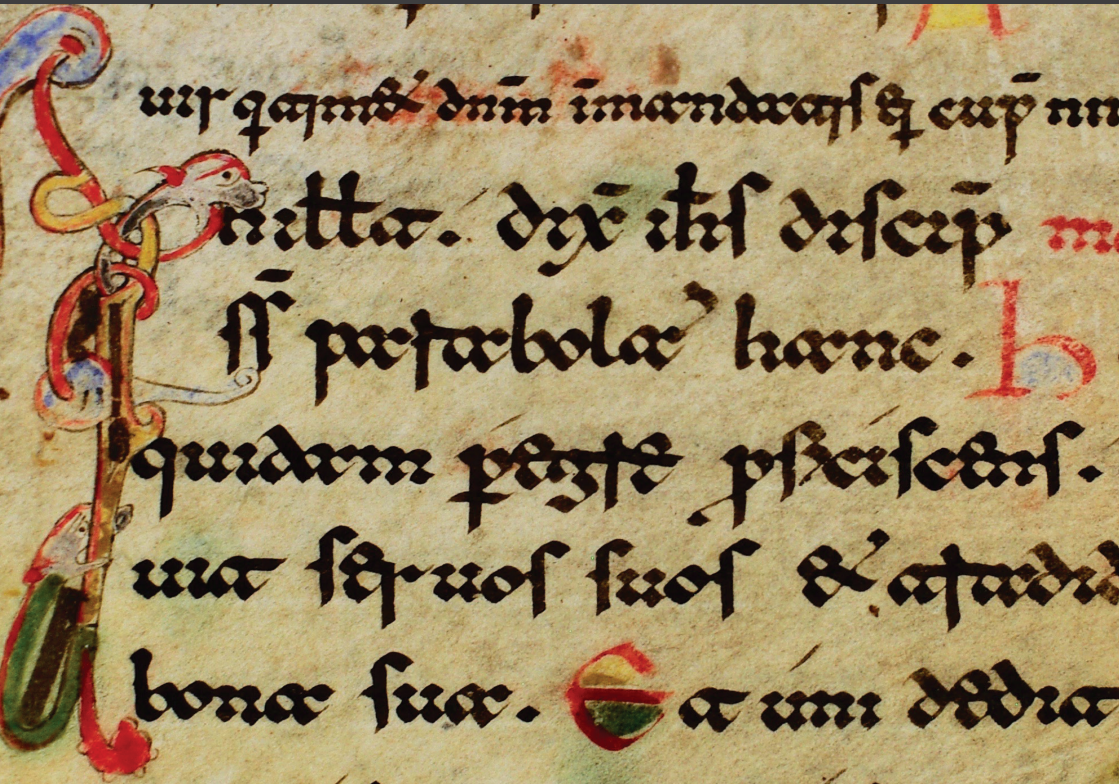 uir q timet dnm̄ īmandatis ei cup̄ nim
In ill̵t. dix̄ ih̄s discip̄
ss̄ parabola hanc. h
quidam p̲egre ꝓficiscens.
uit seruos suos & tradidi
bona sua. Et uni dedit